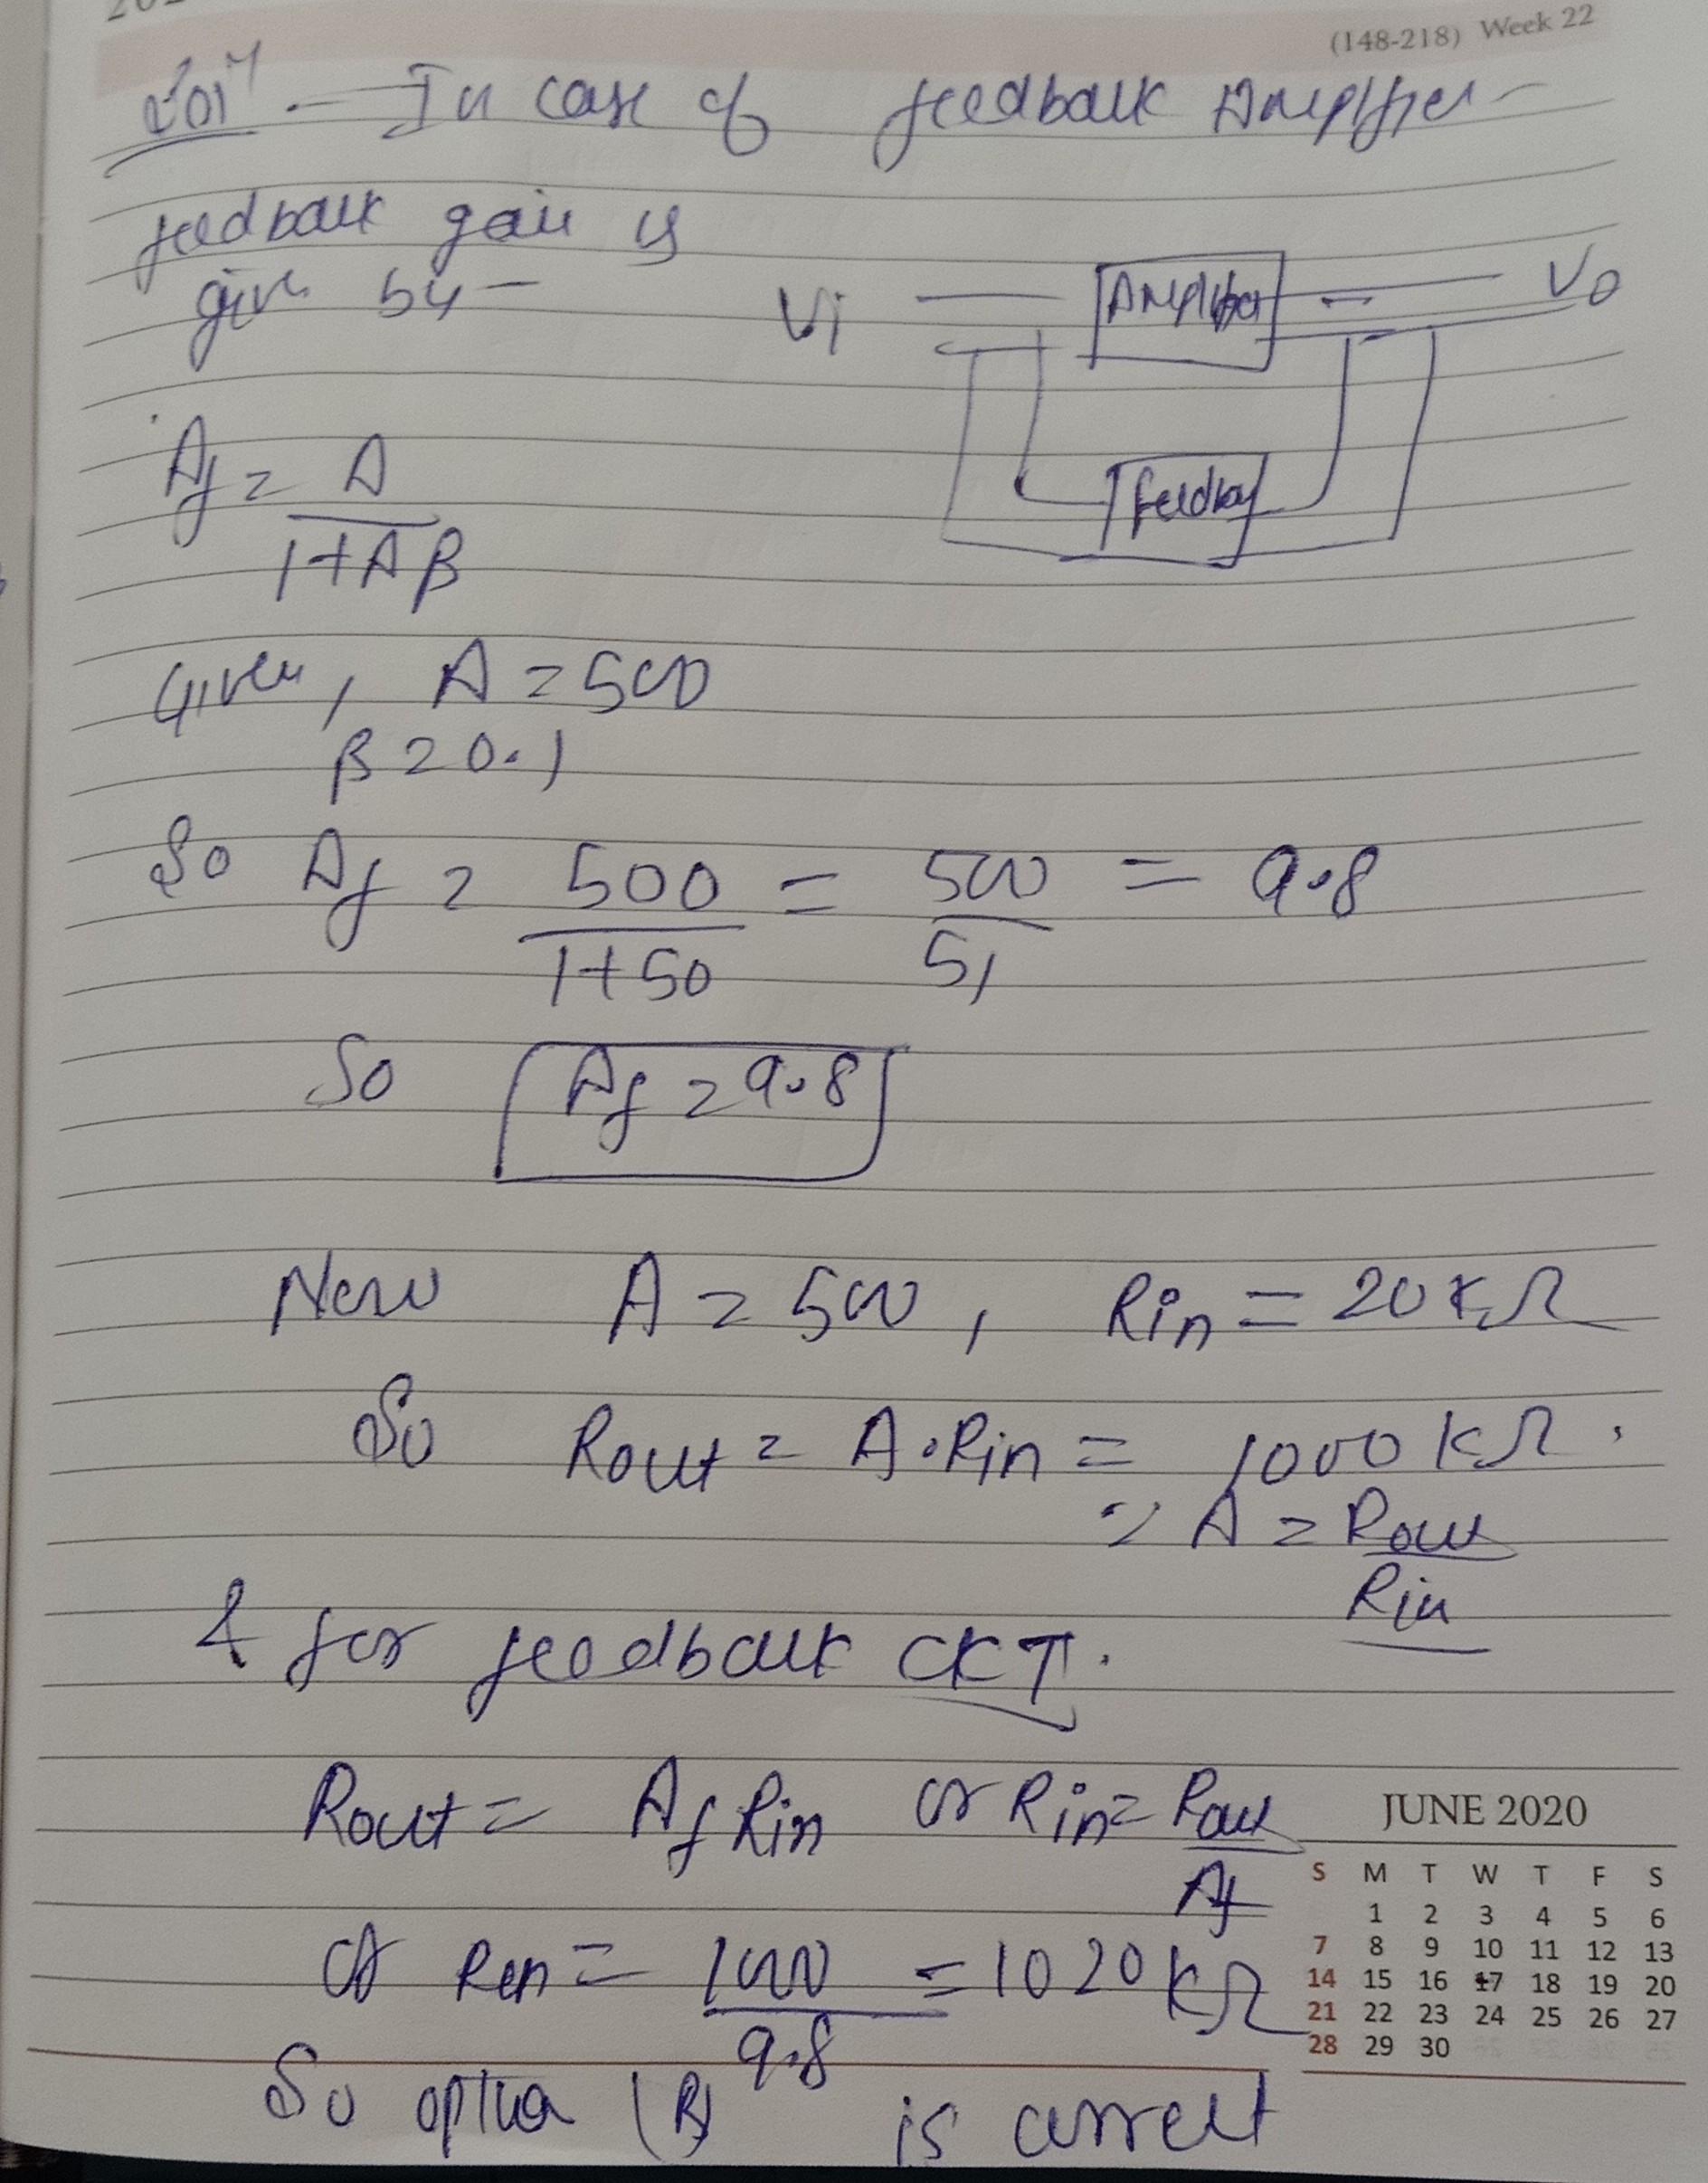 (148-218) Week 22
Solⁿ - In case of feedback Amplifier -
feedback gain is
give by -
Vi Amplifier Vo
Feedback
Af = A / 1+Aβ
Given, A = 500
β = 0.1
So Af = 500 / 1+50 = 500 / 51 = 9.8
So Af = 9.8
New A = 500, Rin = 20 KΩ
So Rout = A.Rin = 1000 KΩ.
∵ A = Rout / Rin
& for feedback CKT.
Rout = Af Rin or Rin = Rout / Af
or Rin = 1000 / 9.8 = 1020 KΩ
So option (B) is correct
JUNE 2020
S M T W T F S
1 2 3 4 5 6
7 8 9 10 11 12 13
14 15 16 17 18 19 20
21 22 23 24 25 26 27
28 29 30